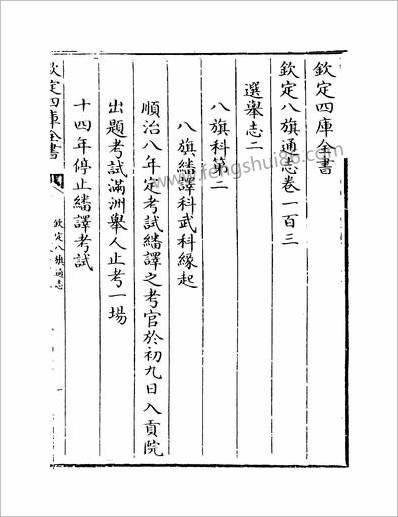 欽定四庫全書
欽定八旗通志卷一百三
選舉志二
八旗科第二
八旗繙譯科武科緣起
順治八年定考試繙譯之考官於初九日入貢院
出題考試滿洲舉人止考一場
十四年停止繙譯考試
欽定四庫全書
欽定八旗通志
一
www.fengshui86.com